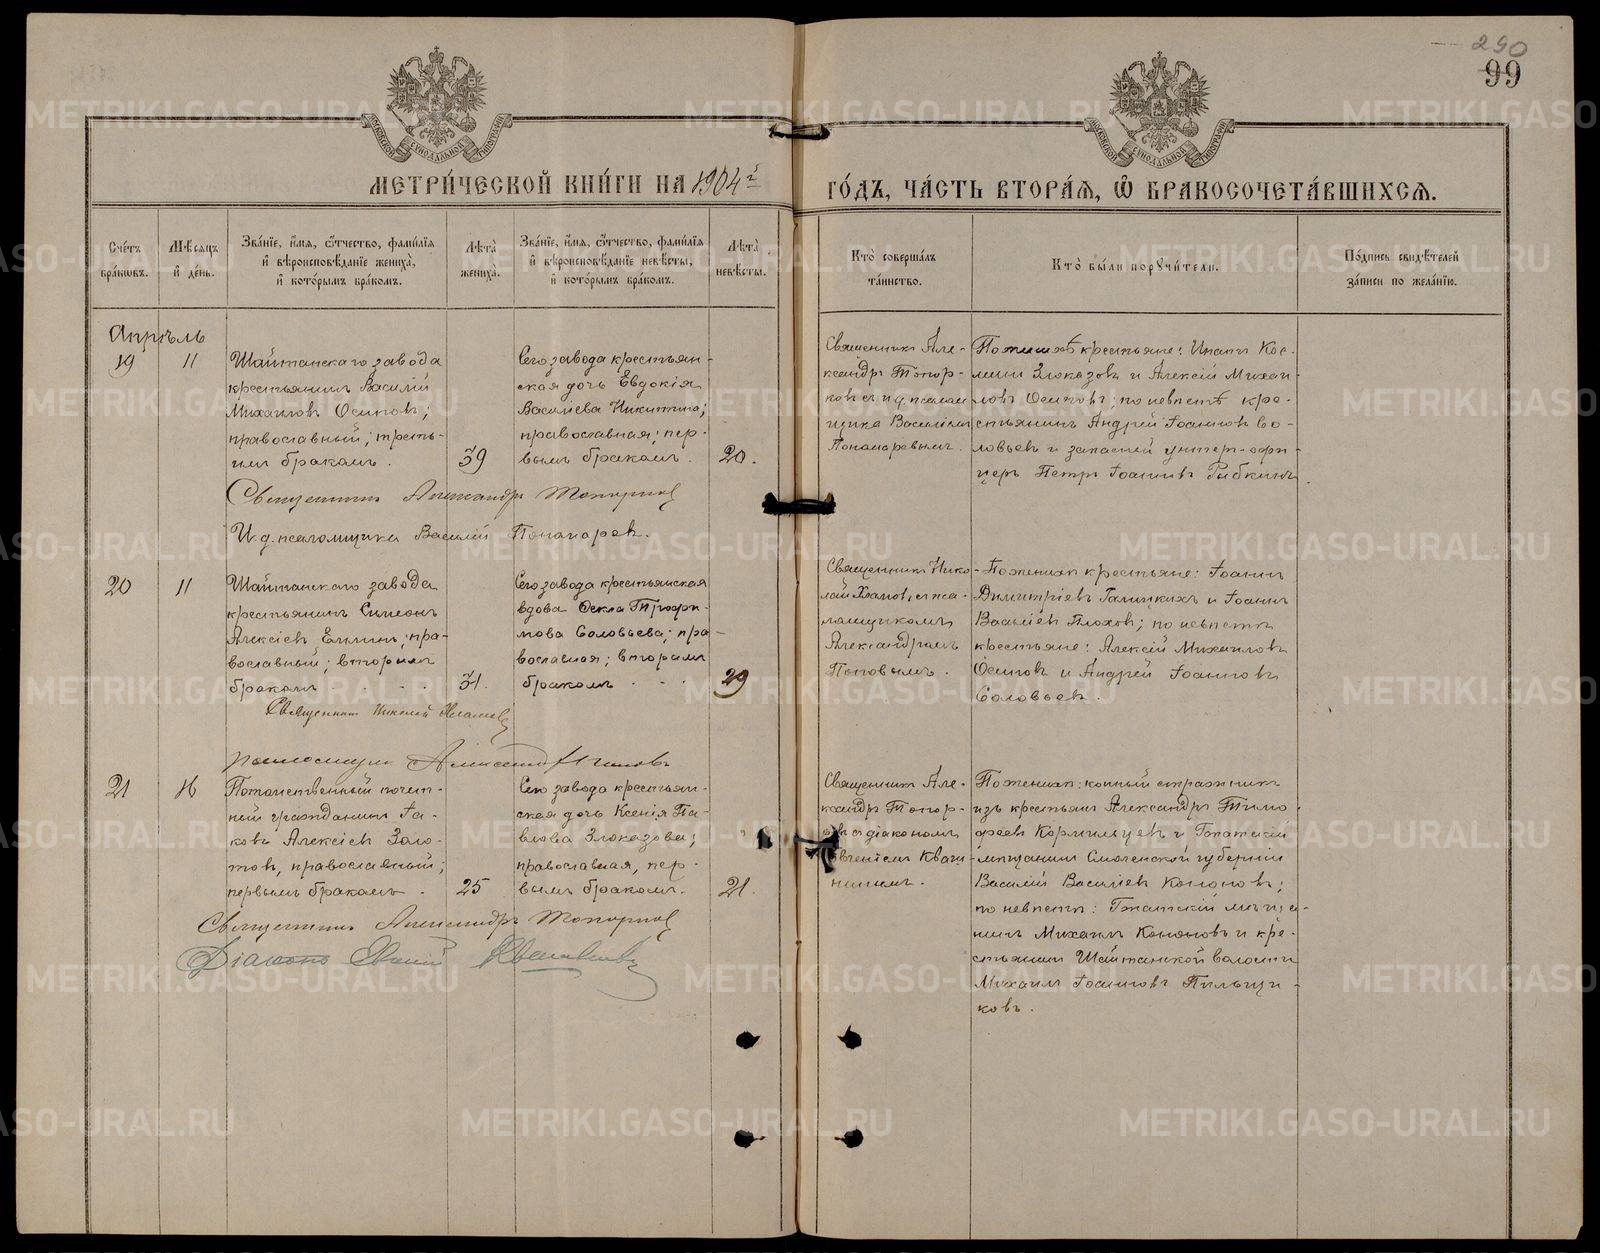 290
99
МОСКОВСКОЙ СУНОДАЛЬНОЙ ТИПОГРАФІИ
МОСКОВСКОЙ СУНОДАЛЬНОЙ ТИПОГРАФІИ
МЕТРИ́ЧЕСКОЙ КНИ́ГИ НА 1904й ГО́ДЪ, ЧА́СТЬ ВТОРА́Я, Ѽ БРАКОСОЧЕТА́ВШИХСЯ.
Сче́тъ
бра́ковъ.
Мѣ́сяцъ
и де́нь.
Зва́нїе, и́мя, ѻ́тчество, фами́лїя
и вѣроисповѣ́данїе жениха̀,
и кото́рымъ бра́комъ.
Лѣ́та
жениха̀.
Зва́нїе, и́мя, ѻ́тчество, фами́лїя
и вѣроисповѣ́данїе невѣ́сты,
и кото́рымъ бра́комъ.
Лѣ́та
невѣ́сты.
Кто̀ соверша́лъ
та́инство.
Кто̀ бы́ли порꙋчи́тели.
По́дпись свидѣ́телей
за́писи по жела́нїю.
Апрѣль
19
11
Шайтанскаго завода
крестьянинъ Василій
Михаиловъ Осиповъ;
православный; треть-
имъ бракомъ.
39
Сего завода крестьян-
ская дочь Евдокія
Васильева Никитина;
православная; пер-
вымъ бракомъ.
20.
Священникъ Але-
ксандръ Топор-
ковъ съ и.д. псалом
щика Василіемъ
Пономаревымъ.
По женихѣ крестьяне: Ипатъ Кос-
минъ Злоказовъ и Алексій Михаи-
ловъ Осиповъ; по невѣстѣ кре-
стьянинъ Андрей Іоанновъ Со-
ловьевъ и запасный унтеръ-офи-
церъ Петръ Іоанновъ Рыбкинъ.
Священникъ Александръ Топорковъ
И. д. псаломщика Василій Пономаревъ.
20
11
Шайтанскаго завода
крестьянинъ Симеонъ
Алексіевъ Елькинъ; пра-
вославный; вторымъ
бракомъ
31.
Сего завода крестьянская
вдова Ѳекла Трофи-
мова Соловьева; пра-
вославная; вторымъ
бракомъ
29
Священникъ Нико-
лай Хламовъ съ пса-
ломщикомъ
Александромъ
Поповымъ.
По женихѣ крестьяне: Іоаннъ
Димитріевъ Галицкихъ и Іоаннъ
Васильевъ Плоховъ; по невѣстѣ
крестьяне: Алексій Михаиловъ
Осиповъ и Андрей Іоанновъ
Соловьевъ.
Священникъ Николай Хламовъ
псаломщикъ Александръ Поповъ
21
16
Потомственный почет-
ный гражданинъ Іа-
ковъ Алексіевъ Золо-
товъ, православный;
первымъ бракомъ.
25
Сего завода крестьян-
ская дочь Ксенія Па-
влова Злоказова;
православная, пер-
вымъ бракомъ.
21.
Священникъ Але-
ксандръ Топор-
ковъ съ діакономъ
Евгеніемъ Кваш-
нинымъ.
По женихѣ: конный стражникъ
изъ крестьянъ Александръ Тимо-
феевъ Кормильцевъ и Гжатскій
мѣщанинъ Смоленской губерніи
Василій Васильевъ Кононовъ;
по невѣстѣ: Гжатскій мѣща-
нинъ Михаилъ Кононовъ и кре-
стьянинъ Шайтанской волости
Михаилъ Іоанновъ Пильщи-
ковъ.
Священникъ Александръ Топорковъ
Діаконъ Евгеній Квашнинъ